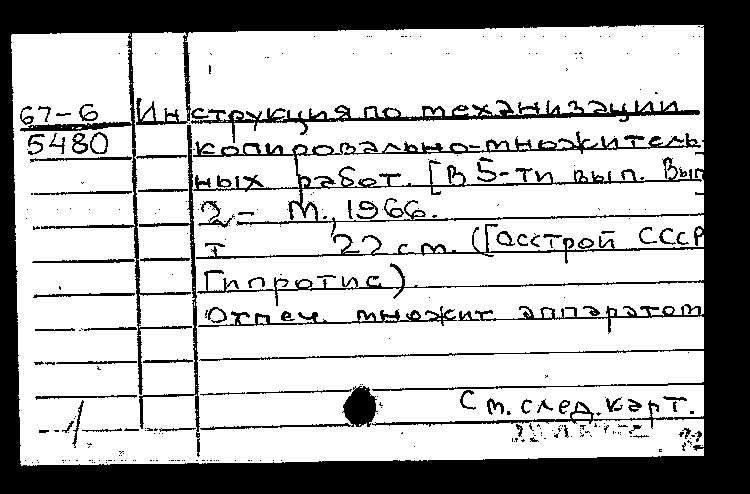 67-6 Инструкция по механизации
5480 копировально-множитель-
ных работ. [В 5-ти вып. Вып
2- М., 1966.
т 22 см. (Госстрой СССР
Гипротис).
Отпеч. множит. аппаратом
См. след. карт.
1